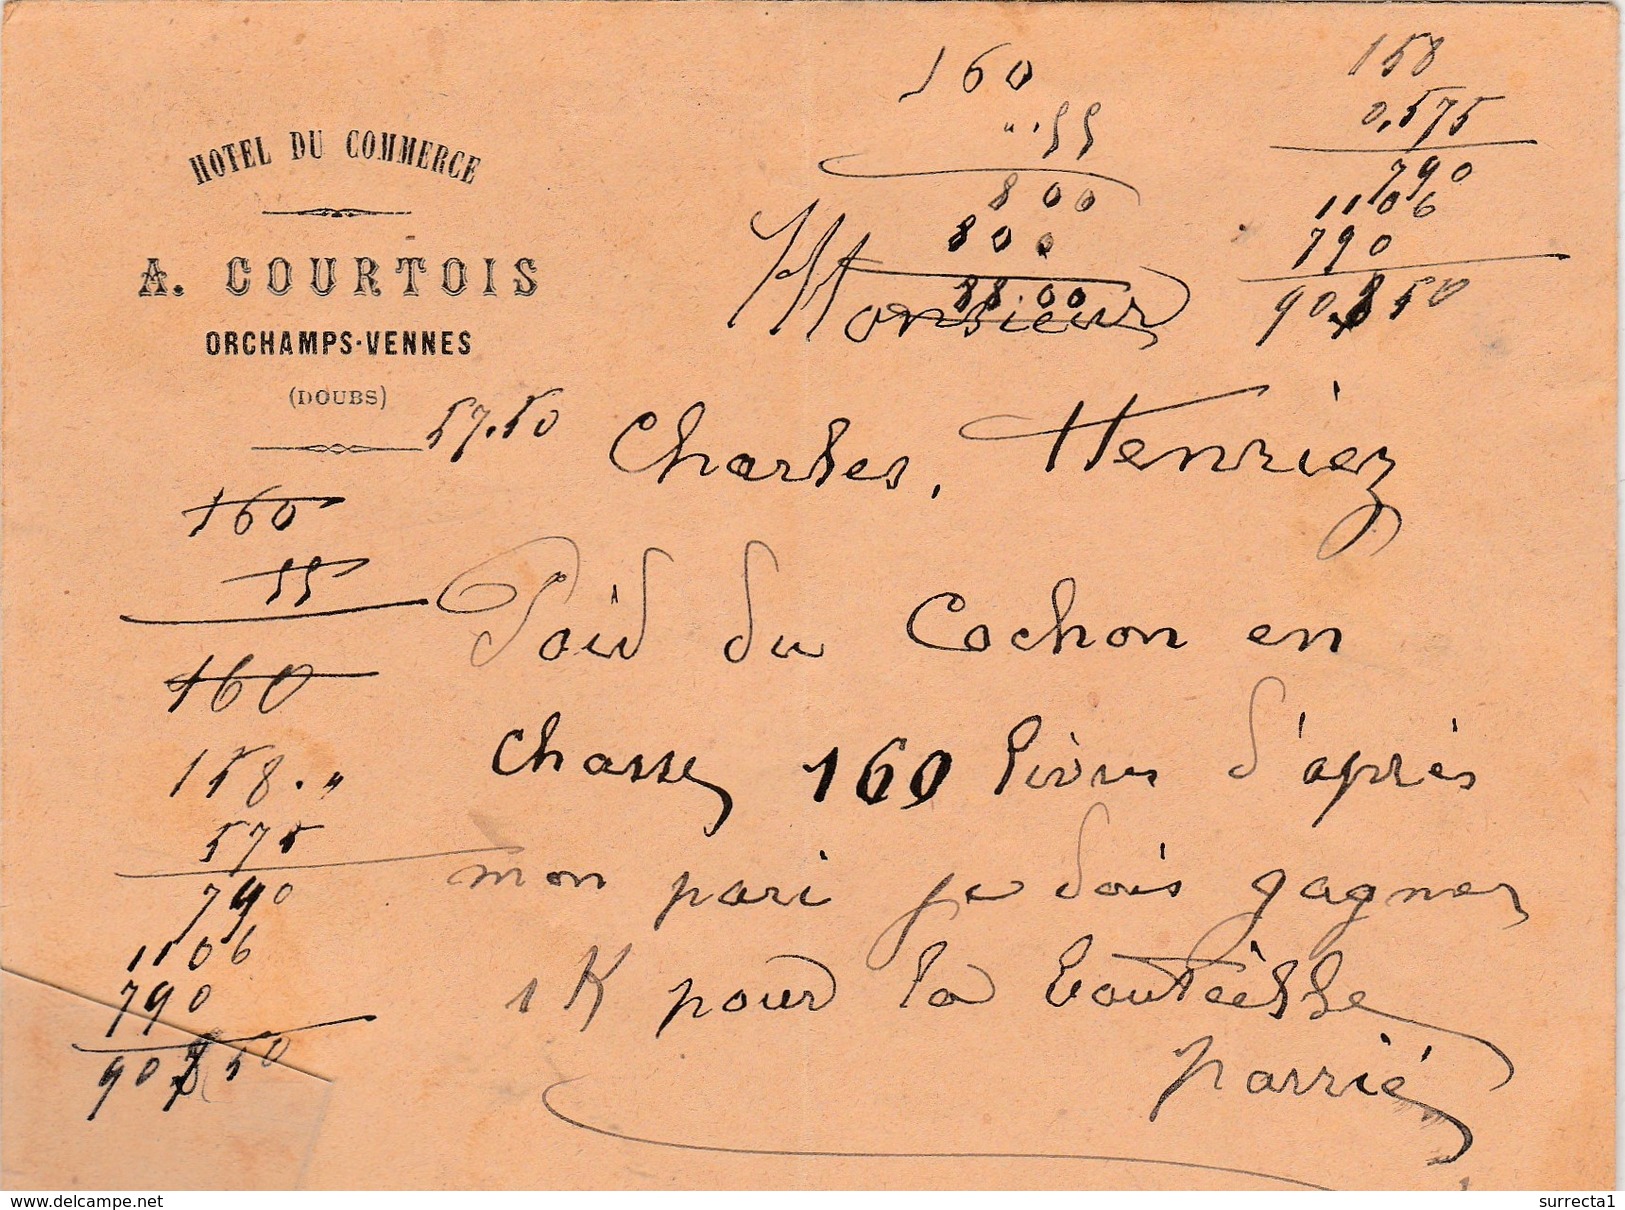 HOTEL DU COMMERCE
A. COURTOIS
ORCHAMPS-VENNES
(DOUBS)
160
".55
800
800
88.00
158
0,575
790
1106
790
90.850
Monsieur
57.50
Charles, Henriez
160
55
160
Poid du Cochon en
chasse 160 livres d'après
158."
575
790
1106
790
90 850
mon pari je dois gagner
1 K pour la bouteille
parrié
www.delcampe.net
surrecta1